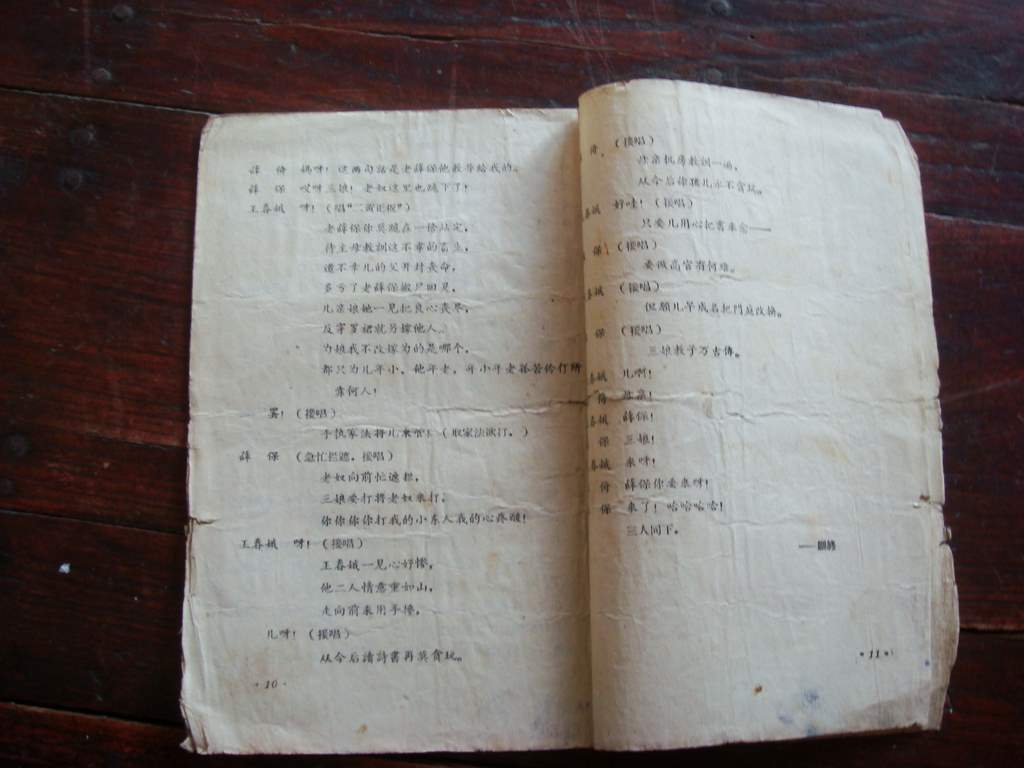 薛　倚　媽呀！这两句話是老薛保他教导給我的。
薛　保　哎呀三娘！老奴这里也跪下了！
王春娥　呀！（唱“二黄正板”）
老薛保你莫跪在一傍站定，
待主母教訓这不孝的畜生，
遭不幸儿的父开封丧命，
多亏了老薛保搬尸回灵，
儿亲娘她一見把良心丧尽，
反穿罗裙就另嫁他人。
为娘我不改嫁为的是哪个，
都只为儿年小、他年老，年小年老孤苦伶仃所
靠何人！
罢！（接唱）
手执家法将儿来管！（取家法欲打。）
薛　保　（急忙拦遮，接唱）
老奴向前忙遮拦，
三娘要打将老奴来打，
你你你你打我的小东人我的心疼酸！
王春娥　呀！（接唱）
王春娥一見心好惨，
他二人情意重如山，
走向前来用手搀，
儿呀！（接唱）
从今后讀詩書再莫貪玩。
·10·
倚　（接唱）
母亲机房教訓一遍，
从今后你孩儿永不貪玩。
春娥　好哇！（接唱）
只要儿用心把書来念——
保　（接唱）
要做高官有何难。
春娥　（接唱）
但願儿早成名把門庭改换。
保　（接唱）
三娘教子万古傳。
春娥　儿啊！
倚　母亲！
春娥　薛保！
保　三娘！
春娥　来呀！
倚　薛保你要来呀！
保　来了！哈哈哈哈！
三人同下。
——剧終
·11·